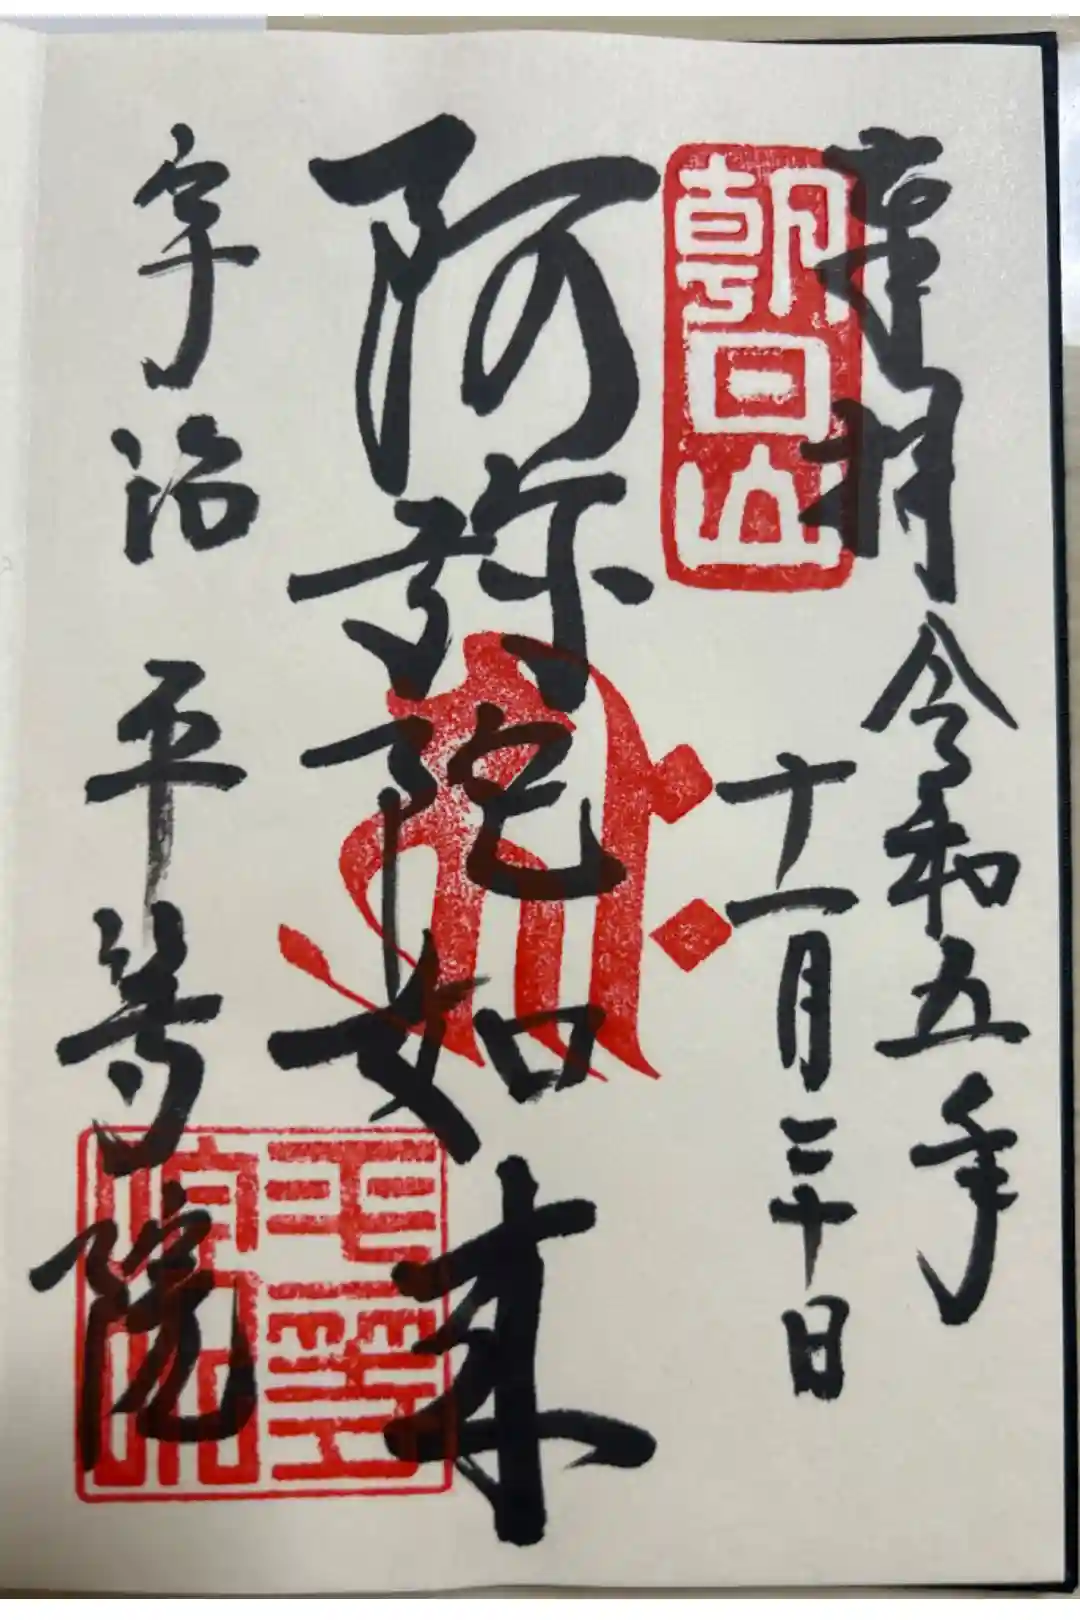 奉拝
令和五年
十一月三十日
朝日山
阿弥陀如来
宇治 平等院
平等院印